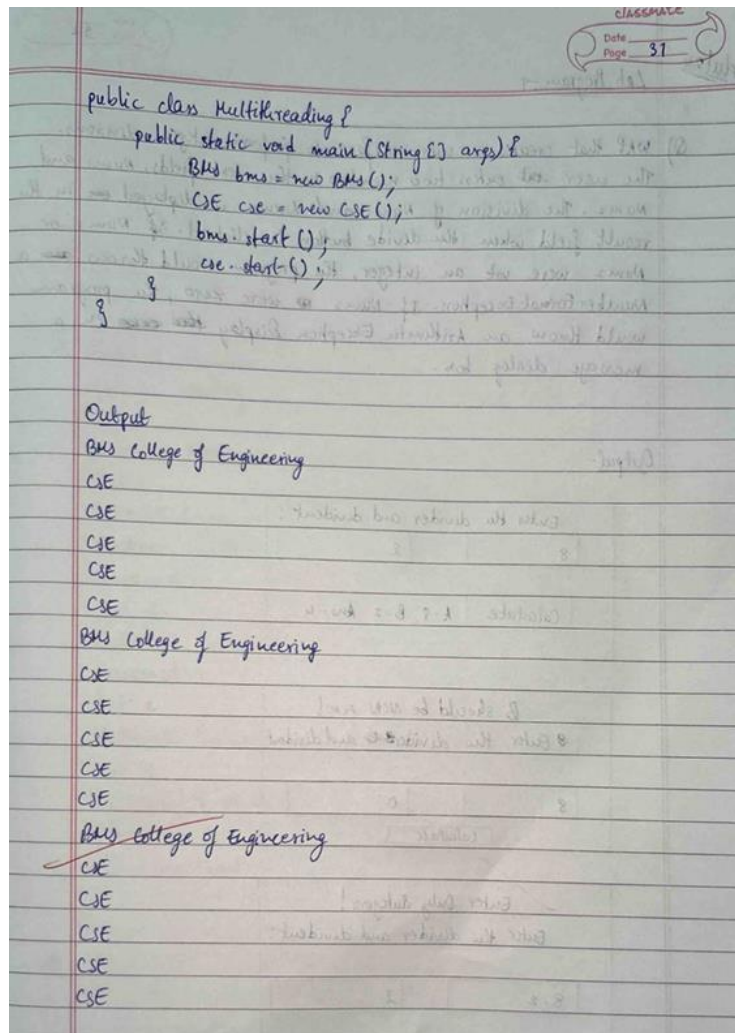 classmate
Date
Page 31
public class Multithreading {
public static void main (String [] args) {
BMS bms = new BMS();
CSE cse = new CSE();
bms.start();
cse.start();
}
}
Output
BMS College of Engineering
CSE
CSE
CSE
CSE
CSE
BMS College of Engineering
CSE
CSE
CSE
CSE
CSE
BMS College of Engineering
CSE
CSE
CSE
CSE
CSE